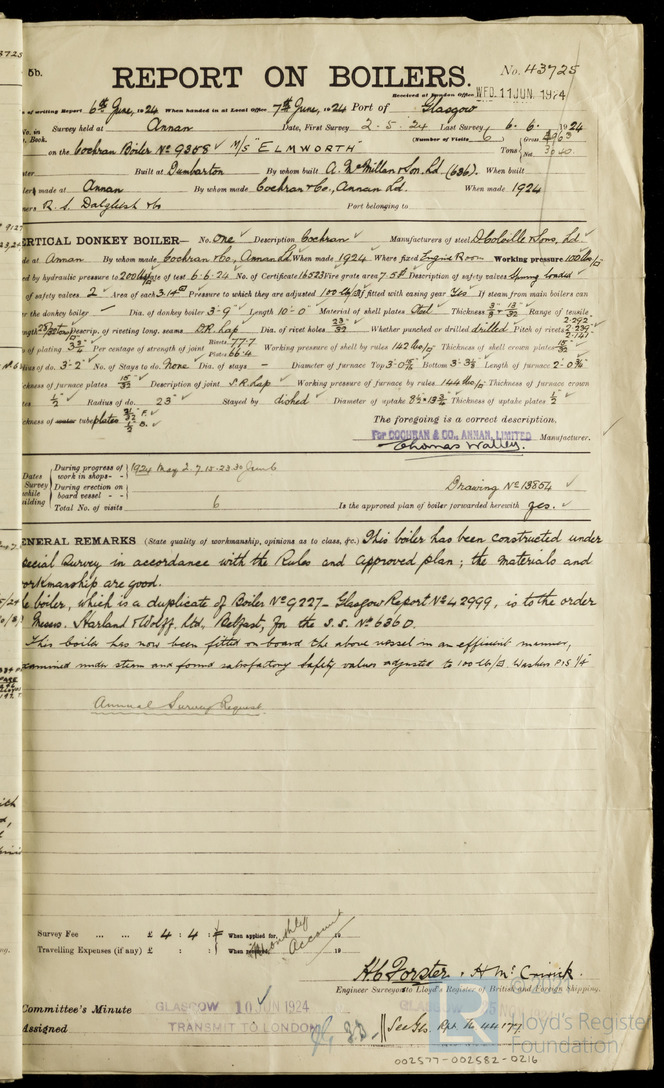 5b.
REPORT ON BOILERS.
No. 43725
Received at London Office WED. 11 JUN. 1924
of writing Report 6th June, 1924 When handed in at Local Office 7th June, 1924 Port of Glasgow
No. in Survey held at Annan Date, First Survey 2.5.24 Last Survey 6.6.1924
Book. (Number of Visits 6) Gross 3963
on the Cochran Boiler No 9358 M/S "ELMWORTH" Tons Net
Built at Dumbarton By whom built A. McMillan & Son, Ld. (636). When built
made at Annan By whom made Cochran & Co., Annan Ld. When made 1924
R. S. Dalgliesh & Co Port belonging to
VERTICAL DONKEY BOILER— No. One Description Cochran Manufacturers of steel D. Colville & Sons, Ld.
at Annan By whom made Cochran & Co., Annan Ld When made 1924 Where fixed Engine Room Working pressure 100 lbs/□"
by hydraulic pressure to 200 lbs Date of test 6-6-24 No. of Certificate 16523 Fire grate area 7.5 Description of safety valves Spring loaded
of safety valves 2 Area of each 3.14 Pressure to which they are adjusted 100 lb/□" If fitted with easing gear Yes If steam from main boilers can
the donkey boiler – Dia. of donkey boiler 3'-9" Length 10'-0" Material of shell plates Steel Thickness Range of tensile
Descrip. of riveting long. seams D.R. Lap Dia. of rivet holes 23/32 Whether punched or drilled drilled Pitch of rivets 2.292 2.239 2.147
of plating Per centage of strength of joint Rivets 77.7 Plates 66.4 Working pressure of shell by rules 142 lbs/□" Thickness of shell crown plates 15/32
Radius of do. 3'-2" No. of Stays to do. None Dia. of stays – Diameter of furnace Top Bottom Length of furnace
Thickness of furnace plates 15/32 Description of joint S.R. Lap Working pressure of furnace by rules 144 lbs/□" Thickness of furnace crown
1/2 Radius of do. 23" Stayed by dished Diameter of uptake Thickness of uptake plates 1/2
Thickness of water tube plates
The foregoing is a correct description.
For COCHRAN & CO., ANNAN, LIMITED
Thomas Walley. Manufacturer.
Dates of Survey while building
During progress of work in shops - - 1924 May 2. 7. 15. 23. 30 June 6
During erection on board vessel - -
Total No. of visits 6
Drawing No 13854
Is the approved plan of boiler forwarded herewith yes.
GENERAL REMARKS (State quality of workmanship, opinions as to class, &c.) This boiler has been constructed under
special Survey in accordance with the Rules and approved plan; the materials and
workmanship are good.
The boiler, which is a duplicate of Boiler No 9227 – Glasgow Report No 42999, is to the order
Messrs. Harland & Wolff, Ltd., Belfast, for the S.S. No 636D.
This boiler has now been fitted on board the above vessel in an efficient manner,
examined under steam and found satisfactory safety valves adjusted to 100 lb/□". Washers P 1/5 S 1/4
Annual Survey Request
Survey Fee ... ... £ 4 : 4 : When applied for, 19
Monthly Account
Travelling Expenses (if any) £ : : When received, 19
H.C. Forster & H. McCorvick.
Engineer Surveyors to Lloyd's Register of British and Foreign Shipping.
Committee's Minute GLASGOW 10 JUN 1924
Assigned TRANSMIT TO LONDON
See Gls. Rpt. No 44177
Lloyd's Register
Foundation
002577-002582-0216